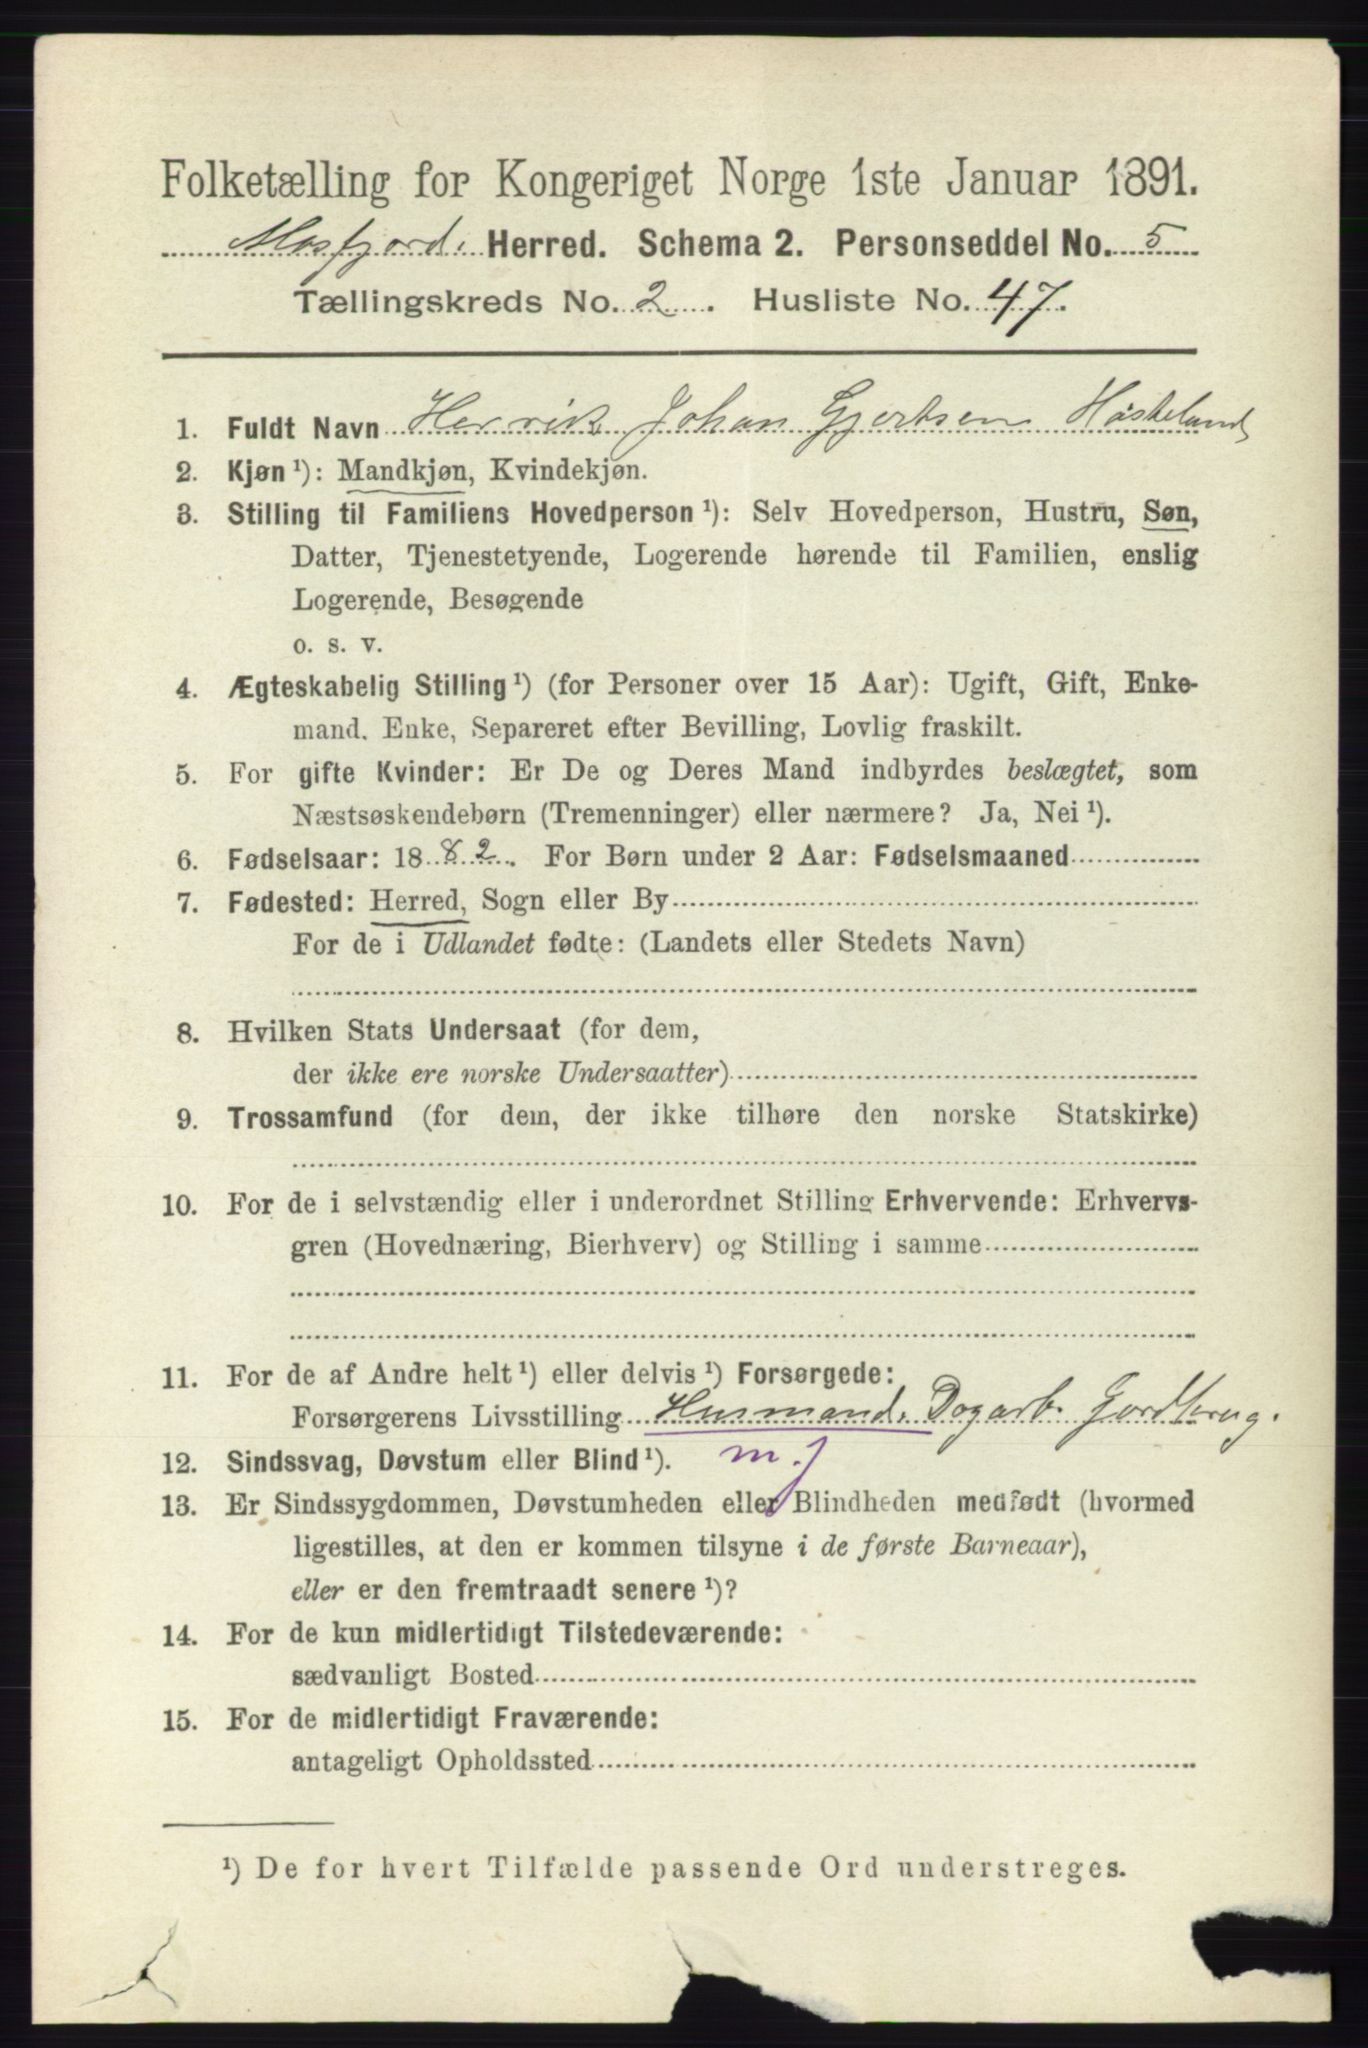 Folketælling for Kongeriget Norge 1ste Januar 1891.
Mosfjord. Herred. Schema 2. Personseddel No. 5
Tællingskreds No. 2. Husliste No. 47.
1. Fuldt Navn Henrik Johan Gjertsen Høskeland
2. Kjøn ¹): Mandkjøn, Kvindekjøn.
3. Stilling til Familiens Hovedperson ¹): Selv Hovedperson, Hustru, Søn,
Datter, Tjenestetyende, Logerende hørende til Familien, enslig
Logerende, Besøgende
o. s. v.
4. Ægteskabelig Stilling ¹) (for Personer over 15 Aar): Ugift, Gift, Enke-
mand. Enke, Separeret efter Bevilling, Lovlig fraskilt.
5. For gifte Kvinder: Er De og Deres Mand indbyrdes beslægtet, som
Næstsøskendebørn (Tremenninger) eller nærmere? Ja, Nei ¹).
6. Fødselsaar: 1882. For Børn under 2 Aar: Fødselsmaaned
7. Fødested: Herred, Sogn eller By
For de i Udlandet fødte: (Landets eller Stedets Navn)
8. Hvilken Stats Undersaat (for dem,
der ikke ere norske Undersaatter)
9. Trossamfund (for dem, der ikke tilhøre den norske Statskirke)
10. For de i selvstændig eller i underordnet Stilling Erhvervende: Erhvervs-
gren (Hovednæring, Bierhverv) og Stilling i samme
11. For de af Andre helt ¹) eller delvis ¹) Forsørgede:
Forsørgerens Livsstilling Husmand. Dagarb. Gardbrug.
12. Sindssvag, Døvstum eller Blind ¹). m. j
13. Er Sindssygdommen, Døvstumheden eller Blindheden medfødt (hvormed
ligestilles, at den er kommen tilsyne i de første Barneaar),
eller er den fremtraadt senere ¹)?
14. For de kun midlertidigt Tilstedeværende:
sædvanligt Bosted
15. For de midlertidigt Fraværende:
antageligt Opholdssted
¹) De for hvert Tilfælde passende Ord understreges.